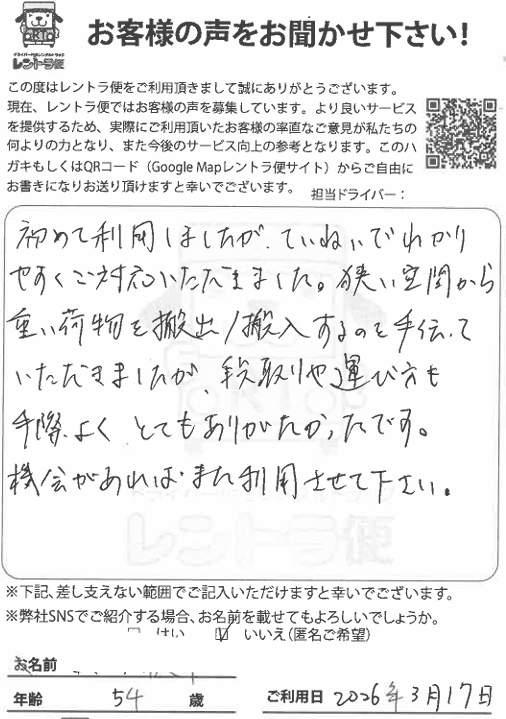 お客様の声をお聞かせ下さい!
ドライバー付レンタルトラック
レントラ便
この度はレントラ便をご利用頂きまして誠にありがとうございます。
現在、レントラ便ではお客様の声を募集しています。より良いサービス
を提供するため、実際にご利用頂いたお客様の率直なご意見が私たちの
何よりの力となり、また今後のサービス向上の参考となります。このハ
ガキもしくはQRコード（Google Mapレントラ便サイト）からご自由に
お書きになりお送り頂けますと幸いでございます。
担当ドライバー：
初めて利用しましたが、ていねいでわかり
やすくご対応いただきました。狭い空間から
重い荷物を搬出/搬入するのを手伝って
いただきましたが、段取りや運び方も
手際よく とてもありがたかったです。
機会があればまた利用させて下さい。
レントラ便
※下記、差し支えない範囲でご記入いただけますと幸いでございます。
※弊社SNSでご紹介する場合、お名前を載せてもよろしいでしょうか。
□ はい ☑ いいえ（匿名ご希望）
お名前
年齢 54 歳 ご利用日 2026年3月17日